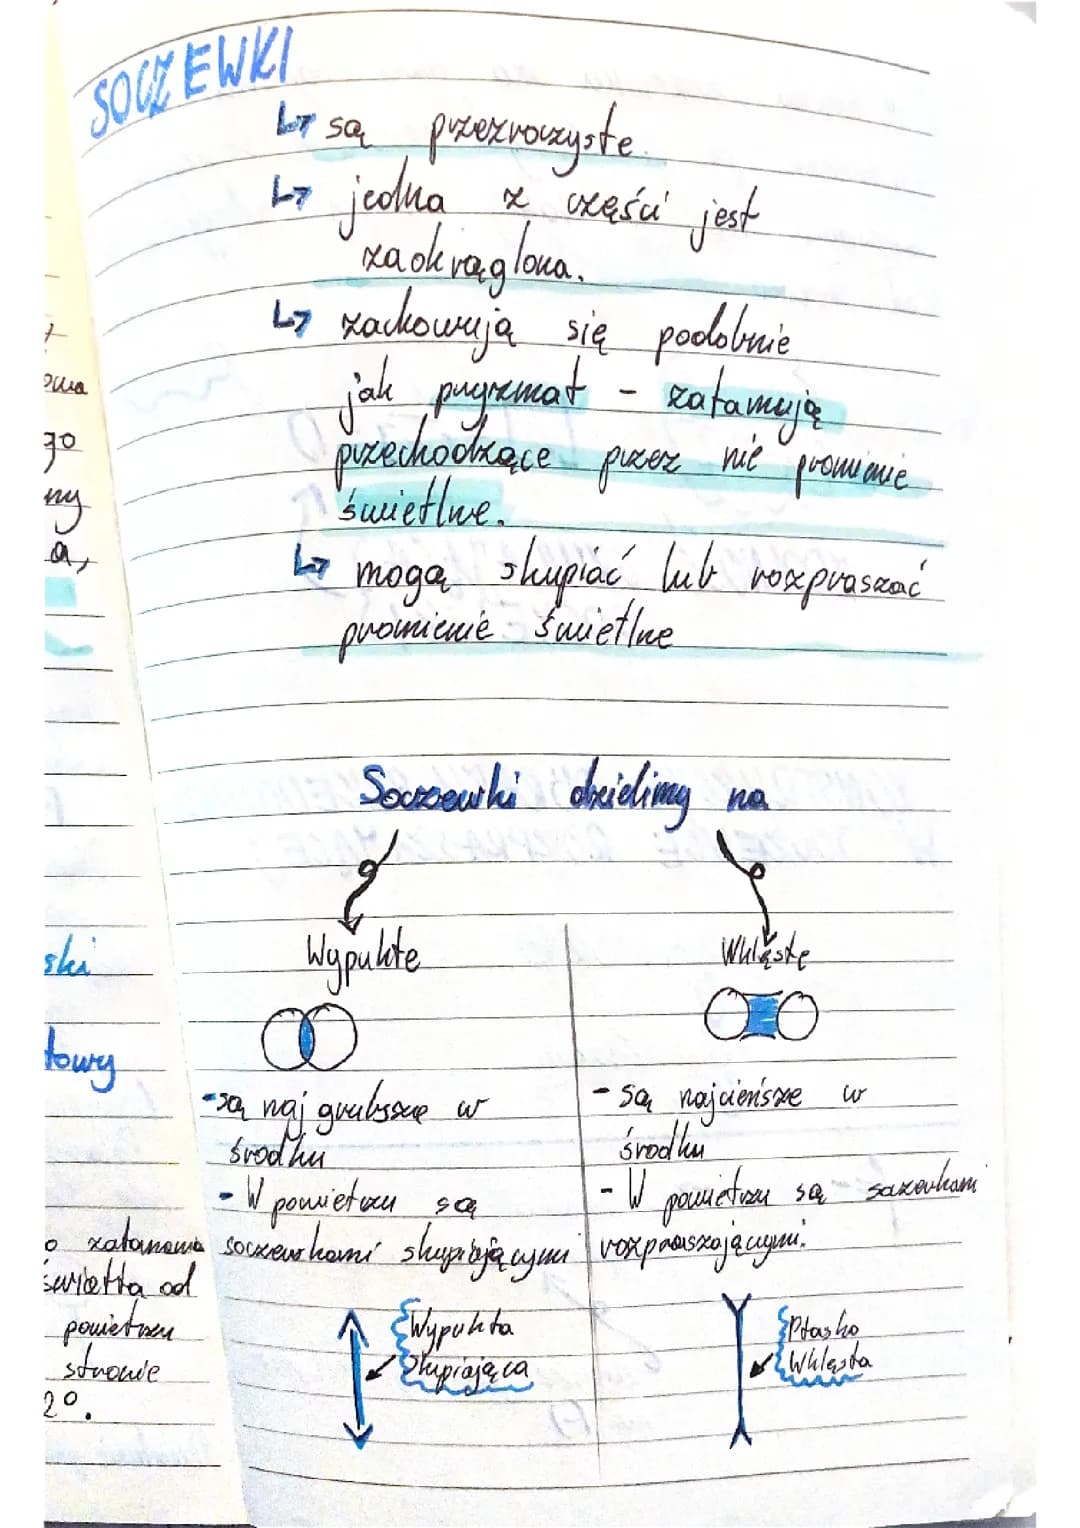 SOCZEWKI
↳ są przezroczyste.
↳ jedna z części jest
zaokrąglona.
↳ zachowują się podobnie
jak pryzmat - załamują
przechodzące przez nie promienie
świetlne.
↳ mogą skupiać lub rozpraszać
promienie świetlne
Soczewki dzielimy na
Wypukłe
Wklęsłe
- są najgrubsze w
środku
- W powietrzu są
soczewkami skupiającymi
- są najcieńsze w
środku
- W powietrzu są
rozpraszającymi.
Wypukła
Skupiająca
Płasko
Wklęsła
owa
go
ny
a,
ski
towy
o załamania
światła od
powietrzu
stronie
20.